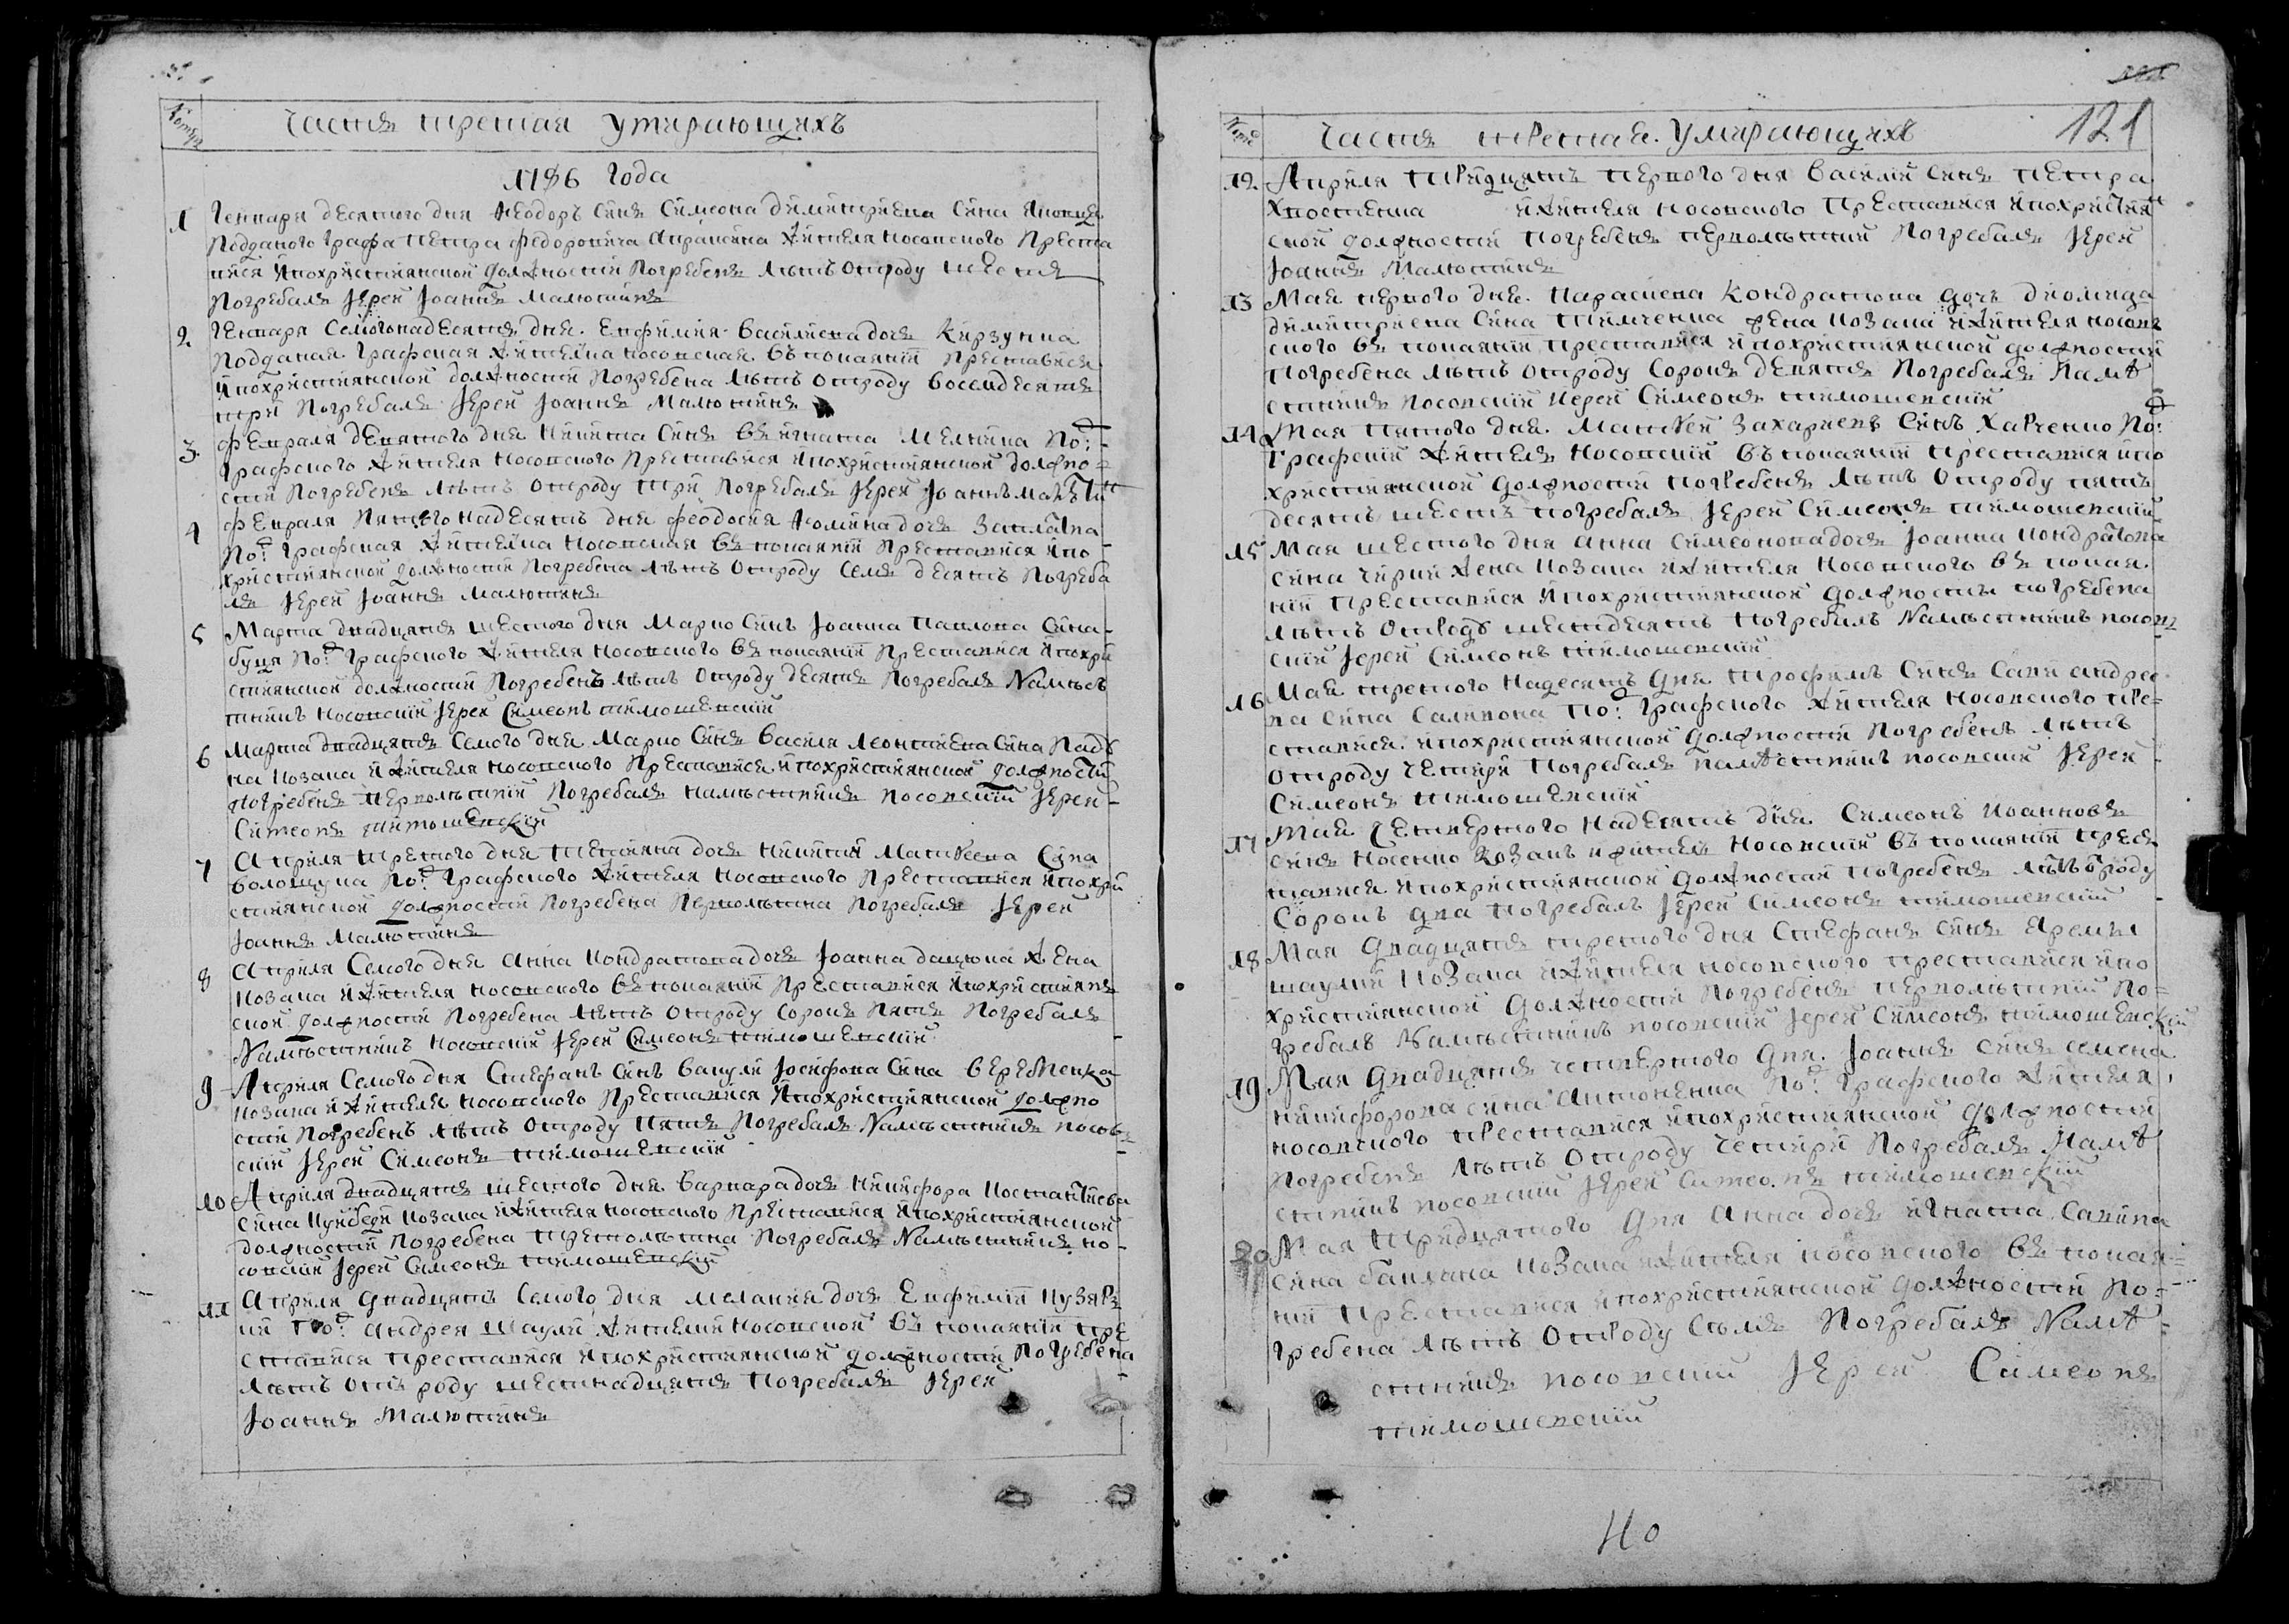 Номѣръ
Частъ третая умирающихъ
1786 Года
1 Генваря десятого дня Ѳеодоръ Синъ Симеона Димитриева Сина
Подданого Графа Петра Федоровича Апраксина жителя носовского Преста
вися и похристиянской должности Погребенъ лѣтъ отроду шесть
Погребалъ Іерей Іоаннъ Малютинъ
2 Генваря Семогонадесять дня Евфимия Василиева дочь Кирзунка
Подданая Графская жителка носовская въ покаянїи Преставися
и похристиянской должности Погребена лѣтъ отроду восемдесятъ
три Погребалъ Іерей Іоаннъ Малютинъ
3 Февраля девятого дня Никита Синъ Игната Мелника По:д
Графского жителя носовского Преставися и похристиянской должно-
сти Погребенъ лѣтъ отроду три Погребалъ Іерей Іоаннъ
4 Февраля Пятогонадесять дня Феодосия Фомина дочь
По:д Графская жителка носовская въ покаянїи Преставися и по
християнской должности Погребена лѣтъ отроду семъ десятъ Погреба
лъ Іерей Іоаннъ Малютинъ
5 Марта двадцять шестого дня Марко Синъ Іоанна Павлова Сина
Буця По:д Графского жителя носовского въ покаянїи Преставися и похри
стиянской должности Погребенъ лѣтъ отроду десять Погребалъ Намѣс
тникъ носовскїй Іерей Симеонъ Тимошевскїй
6 Марта двадцять Семого дня Марко Синъ Василя Леонтиева Сина
козака и жителя носовского Преставися и похристиянской должности
Погребенъ перволѣтнїй Погребалъ намѣстникъ носовскїй Іерей
Симеонъ Тимошевскїй
7 Априля третого дня Тетияна дочь Никити Матвеева Сина
Волощука По:д Графского жителя носовского Преставися и похри
стиянской должности Погребена перволѣтна Погребалъ Іерей
Іоаннъ Малютинъ
8 Априля Семого дня Анна Кондратова дочь Іоанна Дацюка жена
козака и жителя носовского въ покаянїи Преставися и похристиян
ской должности Погребена лѣтъ отроду сорокъ пять Погребалъ
Намѣстникъ носовскїй Іерей Симеонъ Тимошевскїй
9 Априля Семого дня Стефанъ Синъ Вакули Іосифова Сина Веремѣенка
козака и жителя носовского Преставися и похристиянской должно
сти Погребенъ лѣтъ отроду пять Погребалъ Намѣстникъ носов
скїй Іерей Симеонъ Тимошевскїй
10 Априля двадцять шестого дня Варвара дочь Никифора
Сина Куйбеди козака и жителя носовского Преставися и похристиянской
должности Погребена третолѣтна Погребалъ Намѣстникъ но
совскїй Іерей Симеонъ Тимошевскїй
11 Априля двадцять Семого дня Мелания дочь Евфимїи
По:д Андрея Шаули жителки носовской въ покаянїи пре
ставися преставися и похристиянской должности Погребена
лѣтъ отъ роду шестнадцять Погребалъ Іерей
Іоаннъ Малютинъ
121
Номѣръ
Частъ третая. Умирающихъ
12 Априля тридцять первого дня Василий Синъ Петра
Хвостенка и жителя носовского Преставися и похристиян
ской должности погребенъ перволѣтнїй Погребалъ Іерей
Іоаннъ Малютинъ
13 Мая первого дня. Параскева Кондратова дочь Диомида
Димитриева Сина Тимченка жена козака и жителя носов
ского въ покаянїи преставися и похристиянской должности
Погребена лѣтъ отроду сорокъ девять Погребалъ Намѣ
стникъ носовскїй Иерей Симеонъ Тимошевскїй
14 Мая пятого дня. Матвей Захариевъ Синъ Харченко По:д
Графскїй житель носовскїй въ покаянїи преставися и по
християнской должности погребенъ лѣтъ отроду пять
десятъ шесть погребалъ Іерей Симеонъ Тимошевскїй
15 Мая шестого дня Анна Симеонова дочь Іоанна Кондратова
Сина Чирки жена козака и жителя носовского въ покая.
нїи Преставися и похристиянской должности погребена
лѣтъ отроду шестдесятъ Погребалъ Намѣстникъ носов
скїй Іерей Симеонъ Тимошевскїй
16 Мая третого надесять дня Трофимъ Синъ Сави Андрее
ва Сина Саливона По:д Графского жителя носовского Пре-
ставися. и похристиянской должности Погребенъ лѣтъ
отроду четири Погребалъ намѣстникъ носовскїй Іерей
Симеонъ Тимошевскїй
17 Мая Четвертого надесять дня Симеонъ Иоанновъ
Синъ Носенко козакъ и житель носовскїй въ покаянїи прес
тавися и похристиянской должности погребенъ лѣтъ отроду
Сорокъ два Погребалъ Іерей Симеонъ Тимошевскїй
18 Мая двадцять третого дня Стефанъ Синъ Яреми
Шаулки козака и жителя носовского преставися и по
християнской должности погребенъ перволѣтнїй по-
гребалъ Намѣстникъ носовскїй Іерей Симеонъ Тимошевскїй
19 Мая двадцять четвертого дня. Іоаннъ Синъ Семена
Никифорова Сина Антоненка По:д Графского жителя
носовского преставися и похристиянской должности
погребенъ лѣтъ отроду четири Погребалъ Намѣ
стникъ носовскїй Іерей Симеонъ Тимошевскїй
20 Мая Тридцятого дня Анна дочь Игната Савина
Сина Баклана козака и жителя носовского въ покая-
нїи Преставися и похристиянской должности по-
гребена лѣтъ отроду семъ Погребалъ Намѣ
стникъ носовскїй Іерей Симеонъ
Тимошевскїй
40